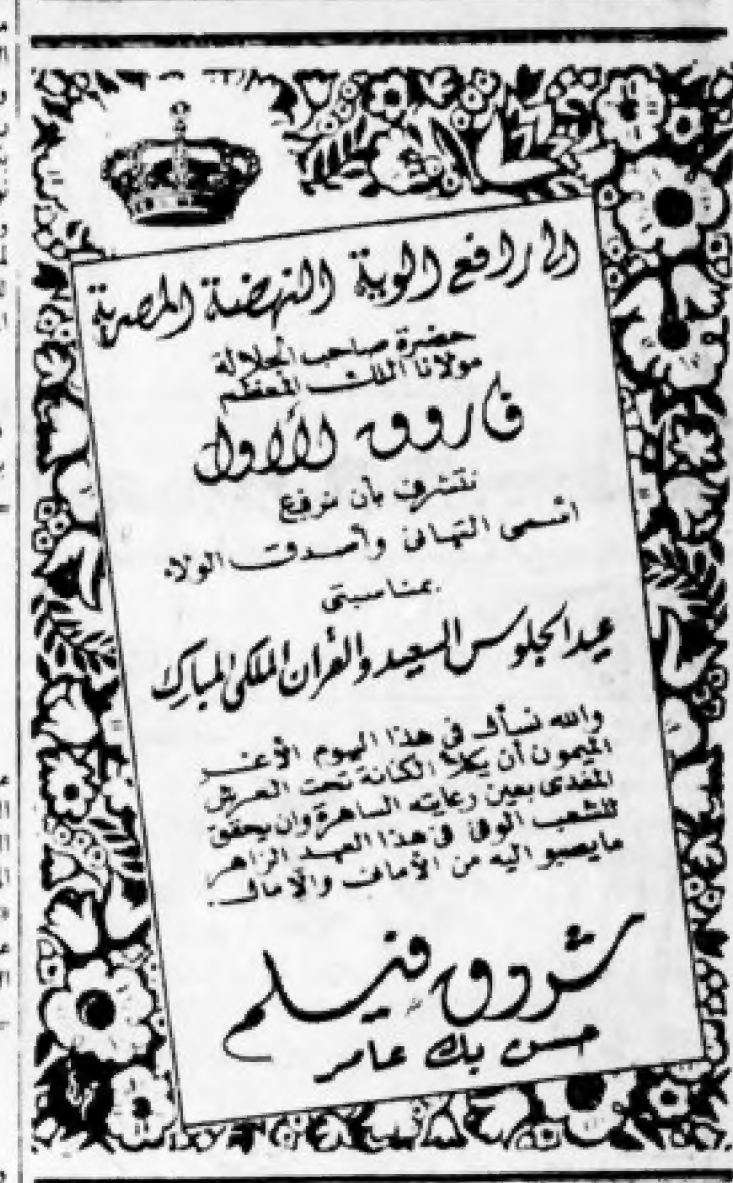 الى رافع ألوية النهضة المصرية
حضرة صاحب الجلالة
مولانا الملك المعظم
فاروق الأول
نتشرف بأن نرفع
أسمى التهانى وأصدق الولاء
بمناسبتى
عيد الجلوس السعيد والقران الملكى المبارك
والله نسأل فى هذا اليوم الأغر
الميمون أن يكلأ الكنانة تحت العرش
المفدى بعين رعايته الساهرة وان يحقق
للشعب الوفى فى هذا العهد الزاهر
مايصبو اليه من الأمانى والآمال.
شروق فيلم
حسن بك عامر